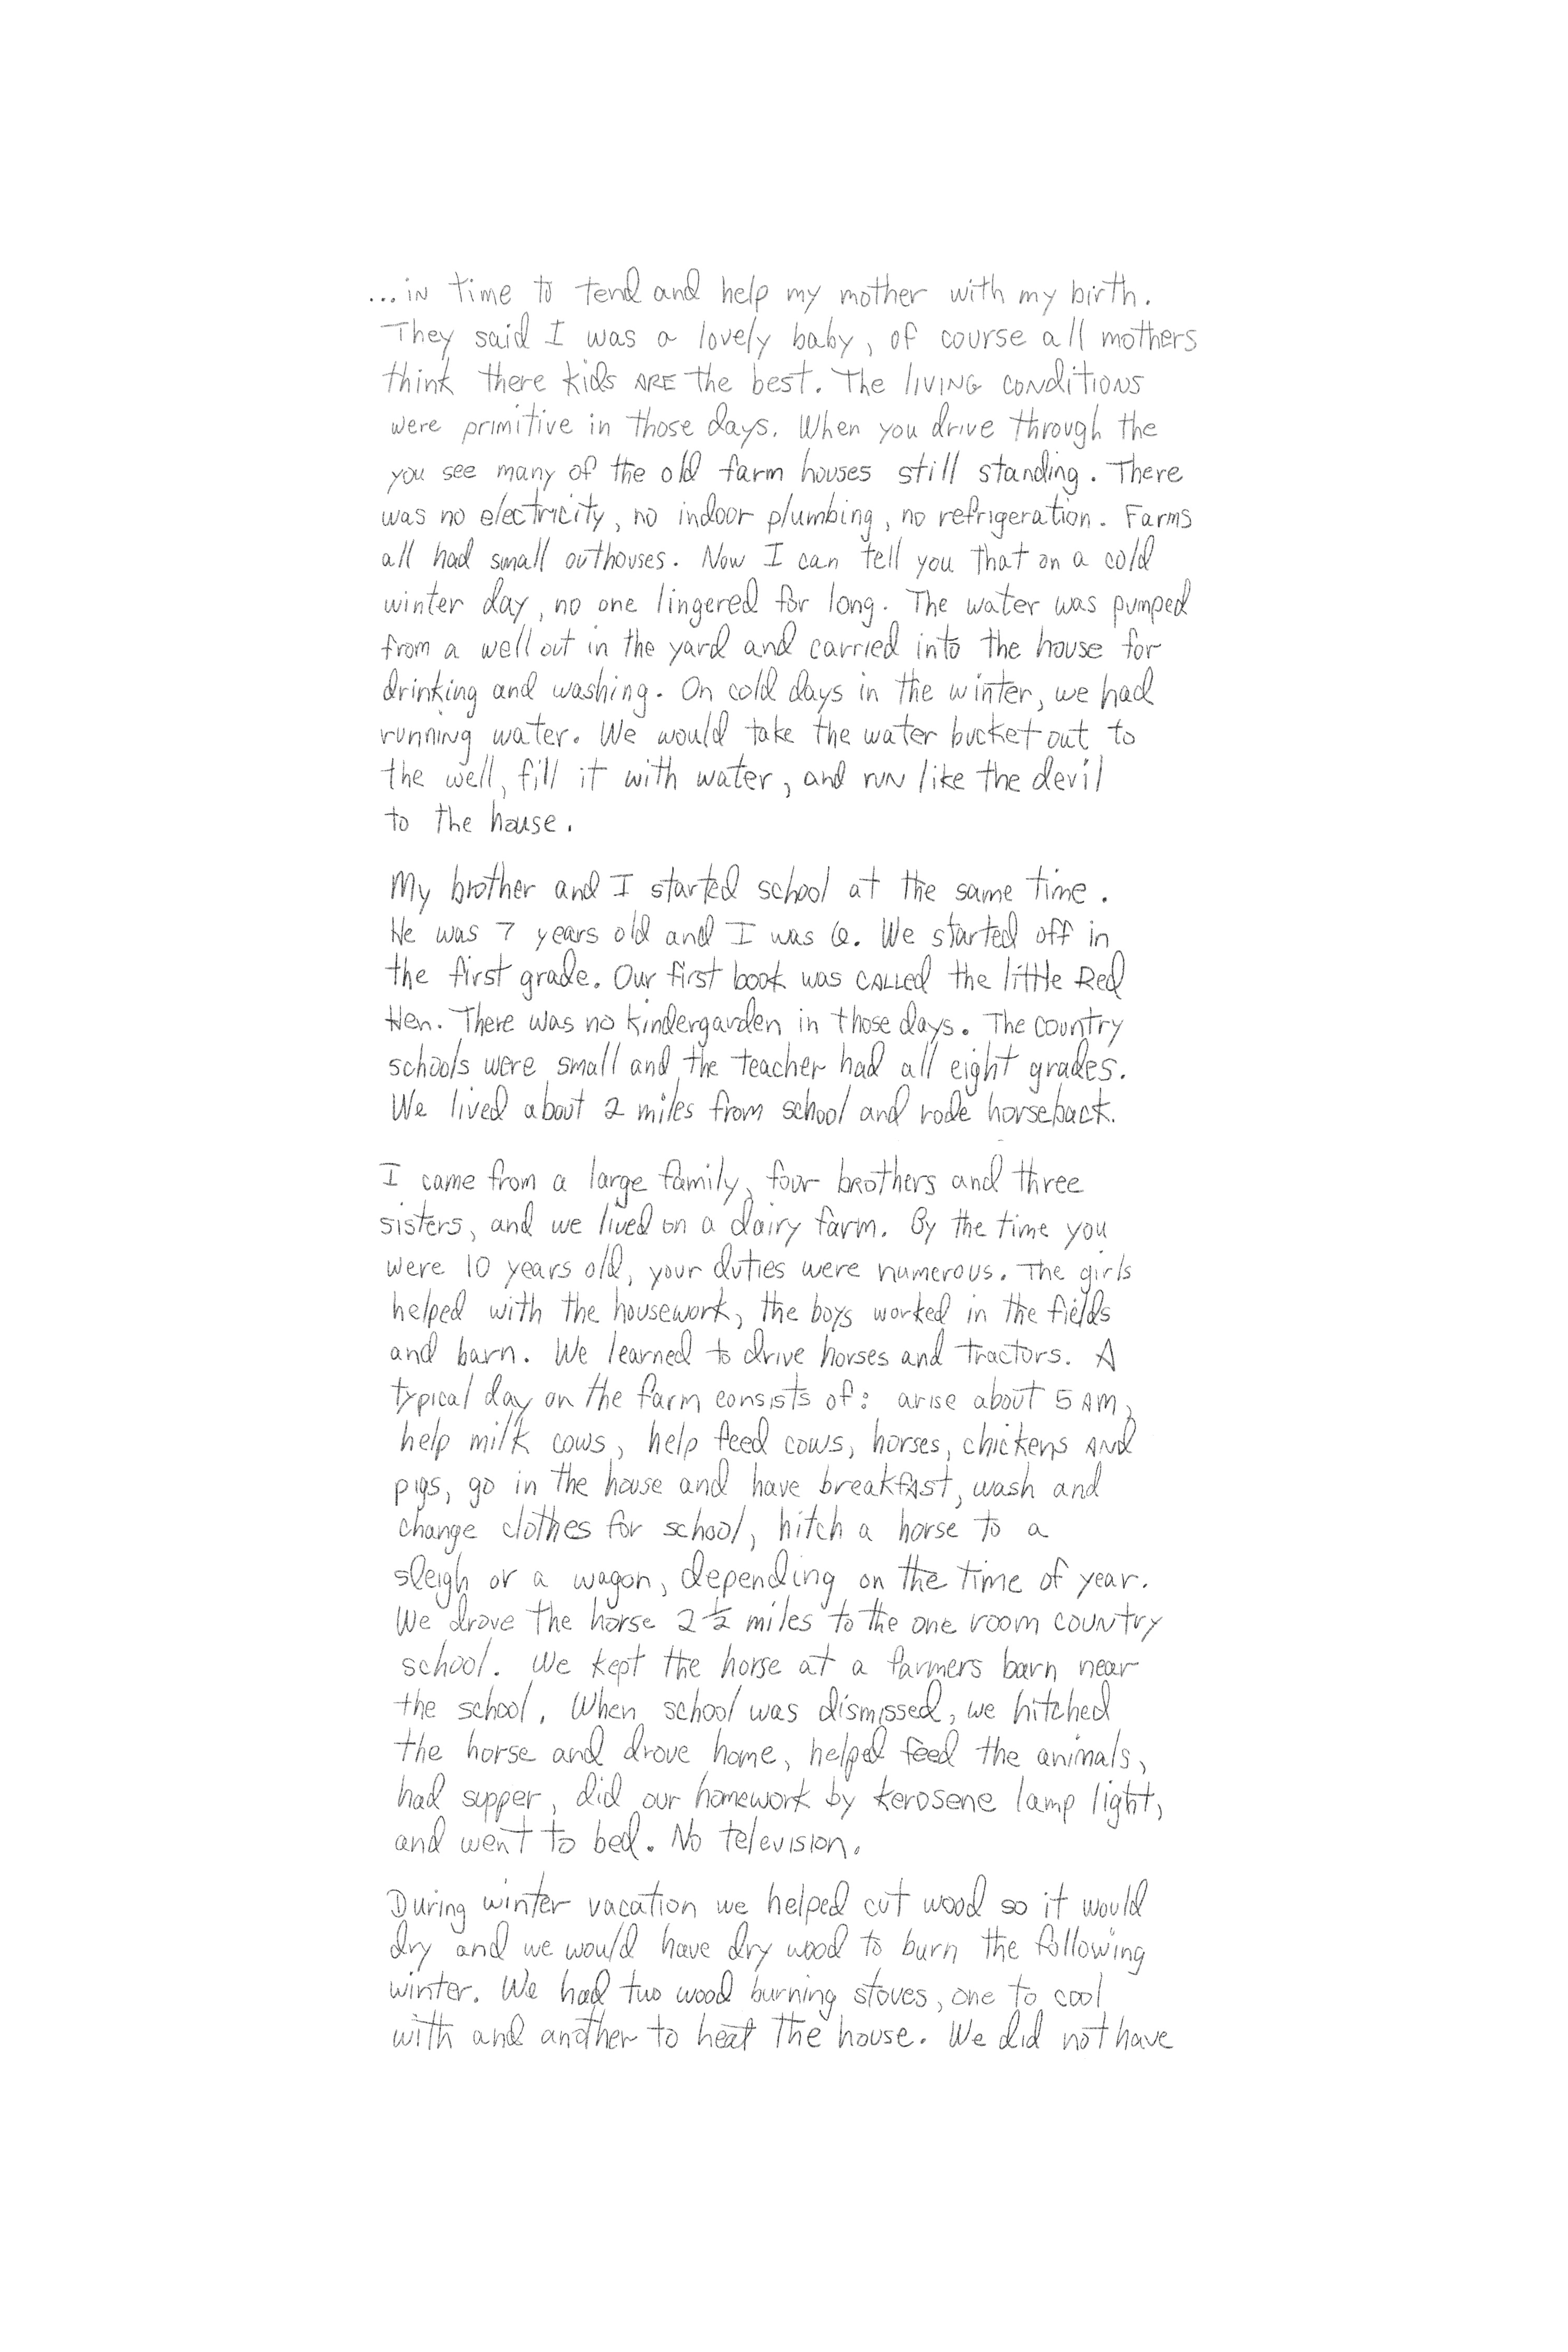 ...in time to tend and help my mother with my birth.
They said I was a lovely baby, of course all mothers
think there kids ARE the best. The living conditions
were primitive in those days. When you drive through the
you see many of the old farm houses still standing. There
was no electricity, no indoor plumbing, no refrigeration. Farms
all had small outhouses. Now I can tell you that on a cold
winter day, no one lingered for long. The water was pumped
from a well out in the yard and carried into the house for
drinking and washing. On cold days in the winter, we had
running water. We would take the water bucket out to
the well, fill it with water, and run like the devil
to the house.
My brother and I started school at the same time.
He was 7 years old and I was 6. We started off in
the first grade. Our first book was CALLED the little Red
Hen. There was no kindergarden in those days. The country
schools were small and the teacher had all eight grades.
We lived about 2 miles from school and rode horseback.
I came from a large family, four brothers and three
sisters, and we lived on a dairy farm. By the time you
were 10 years old, your duties were numerous. The girls
helped with the housework, the boys worked in the fields
and barn. We learned to drive horses and tractors. A
typical day on the farm consists of: arise about 5 AM,
help milk cows, help feed cows, horses, chickens AND
pigs, go in the house and have breakfast, wash and
change clothes for school, hitch a horse to a
sleigh or a wagon, depending on the time of year.
We drove the horse 2 1/2 miles to the one room country
school. We kept the horse at a farmers barn near
the school. When school was dismissed, we hitched
the horse and drove home, helped feed the animals,
had supper, did our homework by kerosene lamp light,
and went to bed. No television.
During winter vacation we helped cut wood so it would
dry and we would have dry wood to burn the following
winter. We had two wood burning stoves, one to cool
with and another to heat the house. We did not have